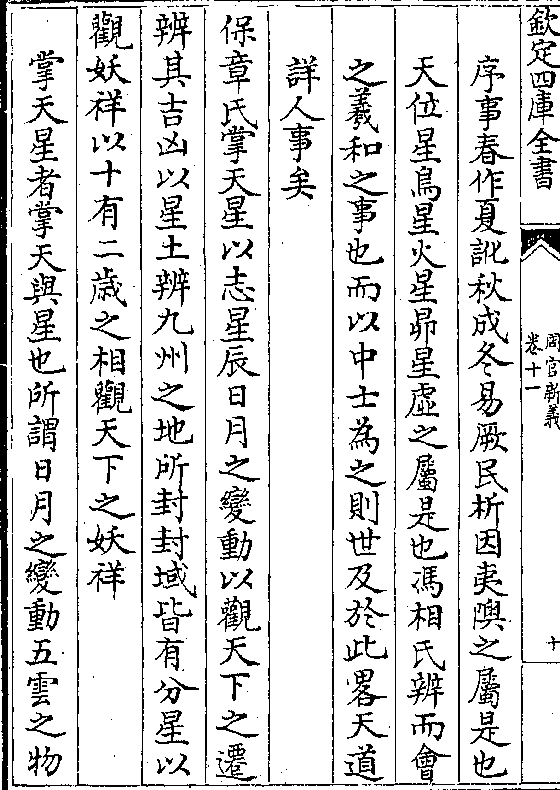 欽定四庫全書
周官新義
卷十一
十
序事春作夏訛秋成冬易厥民析因夷隩之屬是也
天位星鳥星火星昴星虛之屬是也馮相氏辨而會
之羲和之事也而以中士為之則世及於此畧天道
詳人事矣
保章氏掌天星以志星辰日月之變動以觀天下之遷
辨其吉凶以星土辨九州之地所封封域皆有分星以
觀妖祥以十有二歲之相觀天下之妖祥
掌天星者掌天與星也所謂日月之變動五雲之物